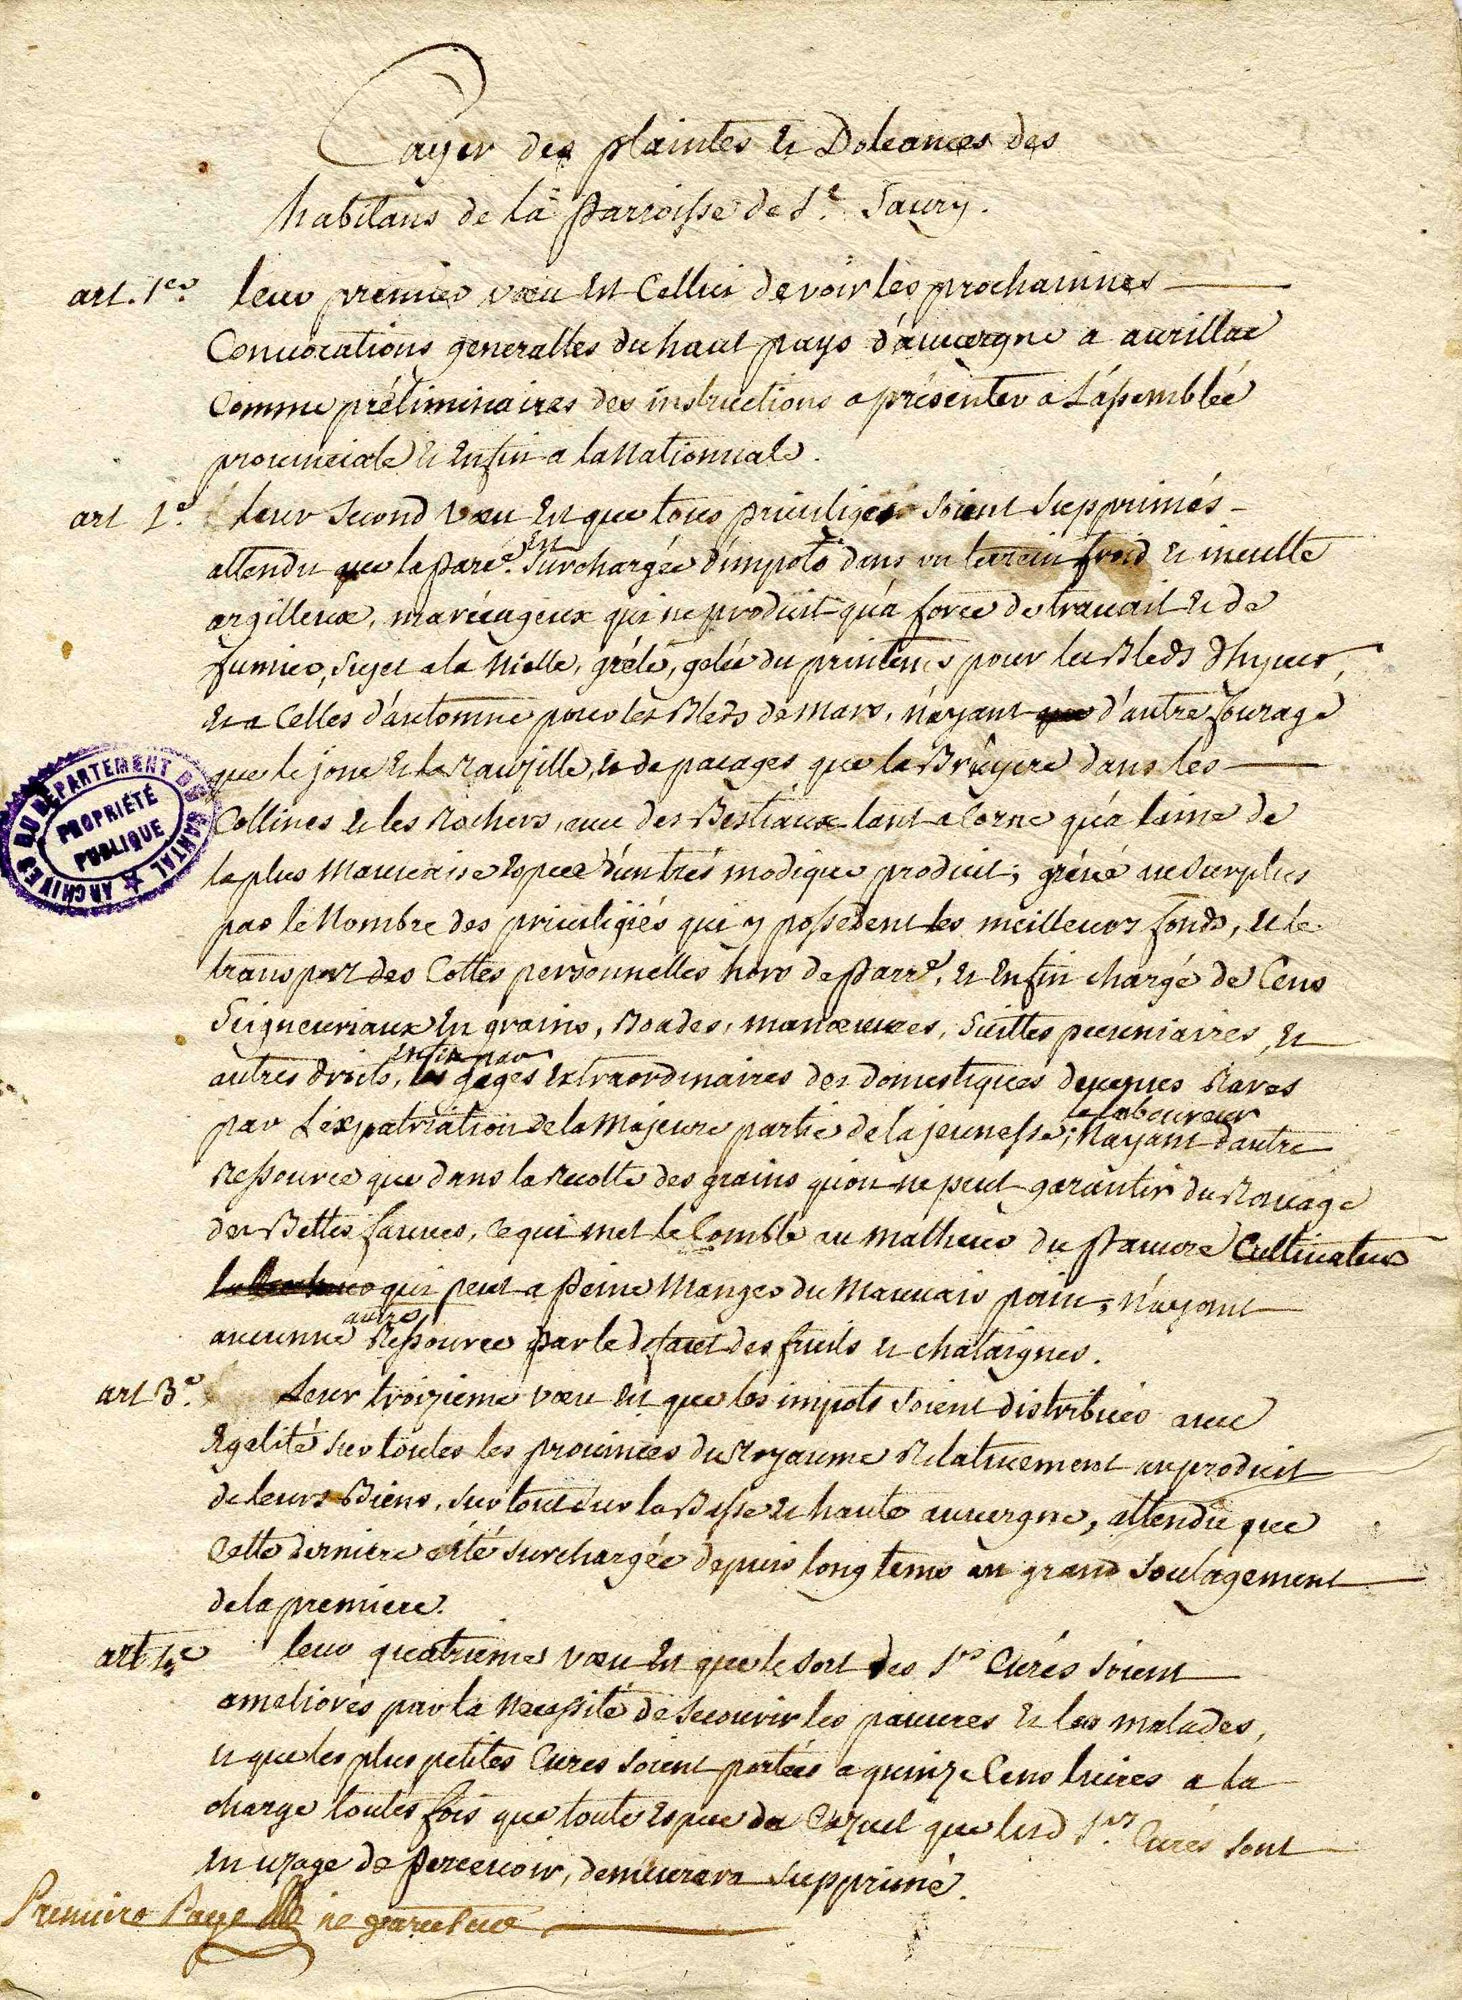 Cayer des plaintes et Doleances des
habitans de la parroisse de St. Saury.
art. 1er. leur premier vœu est Cellui de voir les prochainnes
Convocations generalles du haut pays d'auvergne a aurillac
Comme préliminaires des instructions a présenter a L'assemblée
provinciale et Enfin a la Nationnale.
art 2e. leur second vœu Est que tous privilieges soient supprimés
attendu que la parse. Est surchargée d'impots dans un terrein froid et inculte
argilleux, marécageux qui ne produit qu'a force de travail et de
fumier, sujet a la Nielle, grêle, gelée du printems pour les Bleds d'hyver,
et a Celles d'automne pour les Bleds de Mars, N'ayant d'autre fourage
que le jonc et la , et de pacages que la Bruyere dans les
Collines et les Rochers, avec des Bestiaux tant a Corne qu'a laine de
la plus Mauvaise Espece d'un très modique produit; grévé au surplus
par le Nombre des privilegiés qui y possedent les meilleurs fonds, et le
transport des Cottes personnelles hors de parrse, et Enfin chargé de Cens
Seigneuriaux En grains, Boades, manœuvres, tailles pecuniaires, et
autres droits, Enfin par les gages Extraordinaires des domestiques devenus Rares
par L'éxpatriation de la Majeure partie de la jeunesse; le laboureur N'ayant d'autre
Ressource que dans la Recolte des grains qu'on ne peut garantir du Ravage
des Bettes fauves, ce qui met le Comble au Malheur du pauvre Cultivateur
qui peut a peine Manger du Mauvais pain, N'ayant
aucunne autre Ressource par le defaut des fruits et chataignes.
art 3e. Leur troizieme vœu Est que les impots soient distribués avec
Egalité sur toutes les provinces du Royaume Relativement au produit
de leurs Biens, sur tout sur la Basse et haute auvergne, attendu que
Cette derniere a été surchargée depuis long tems au grand soulagement
de la premiere.
art 4e leur quatrieme vœu Est que le sort des Srs Curés soient
ameliorés par la Necessité de secourir les pauvres et les malades,
et que les plus petites Cures soient portées a quinze Cens livres a la
charge toutes fois que toute Espece de Cazuel que lesd Srs Curés sont
En uzage de percevoir, demeurera supprimé.
Premiere Page ne
ARCHIVES DU DÉPARTEMENT DU CANTAL
PROPRIÉTÉ
PUBLIQUE